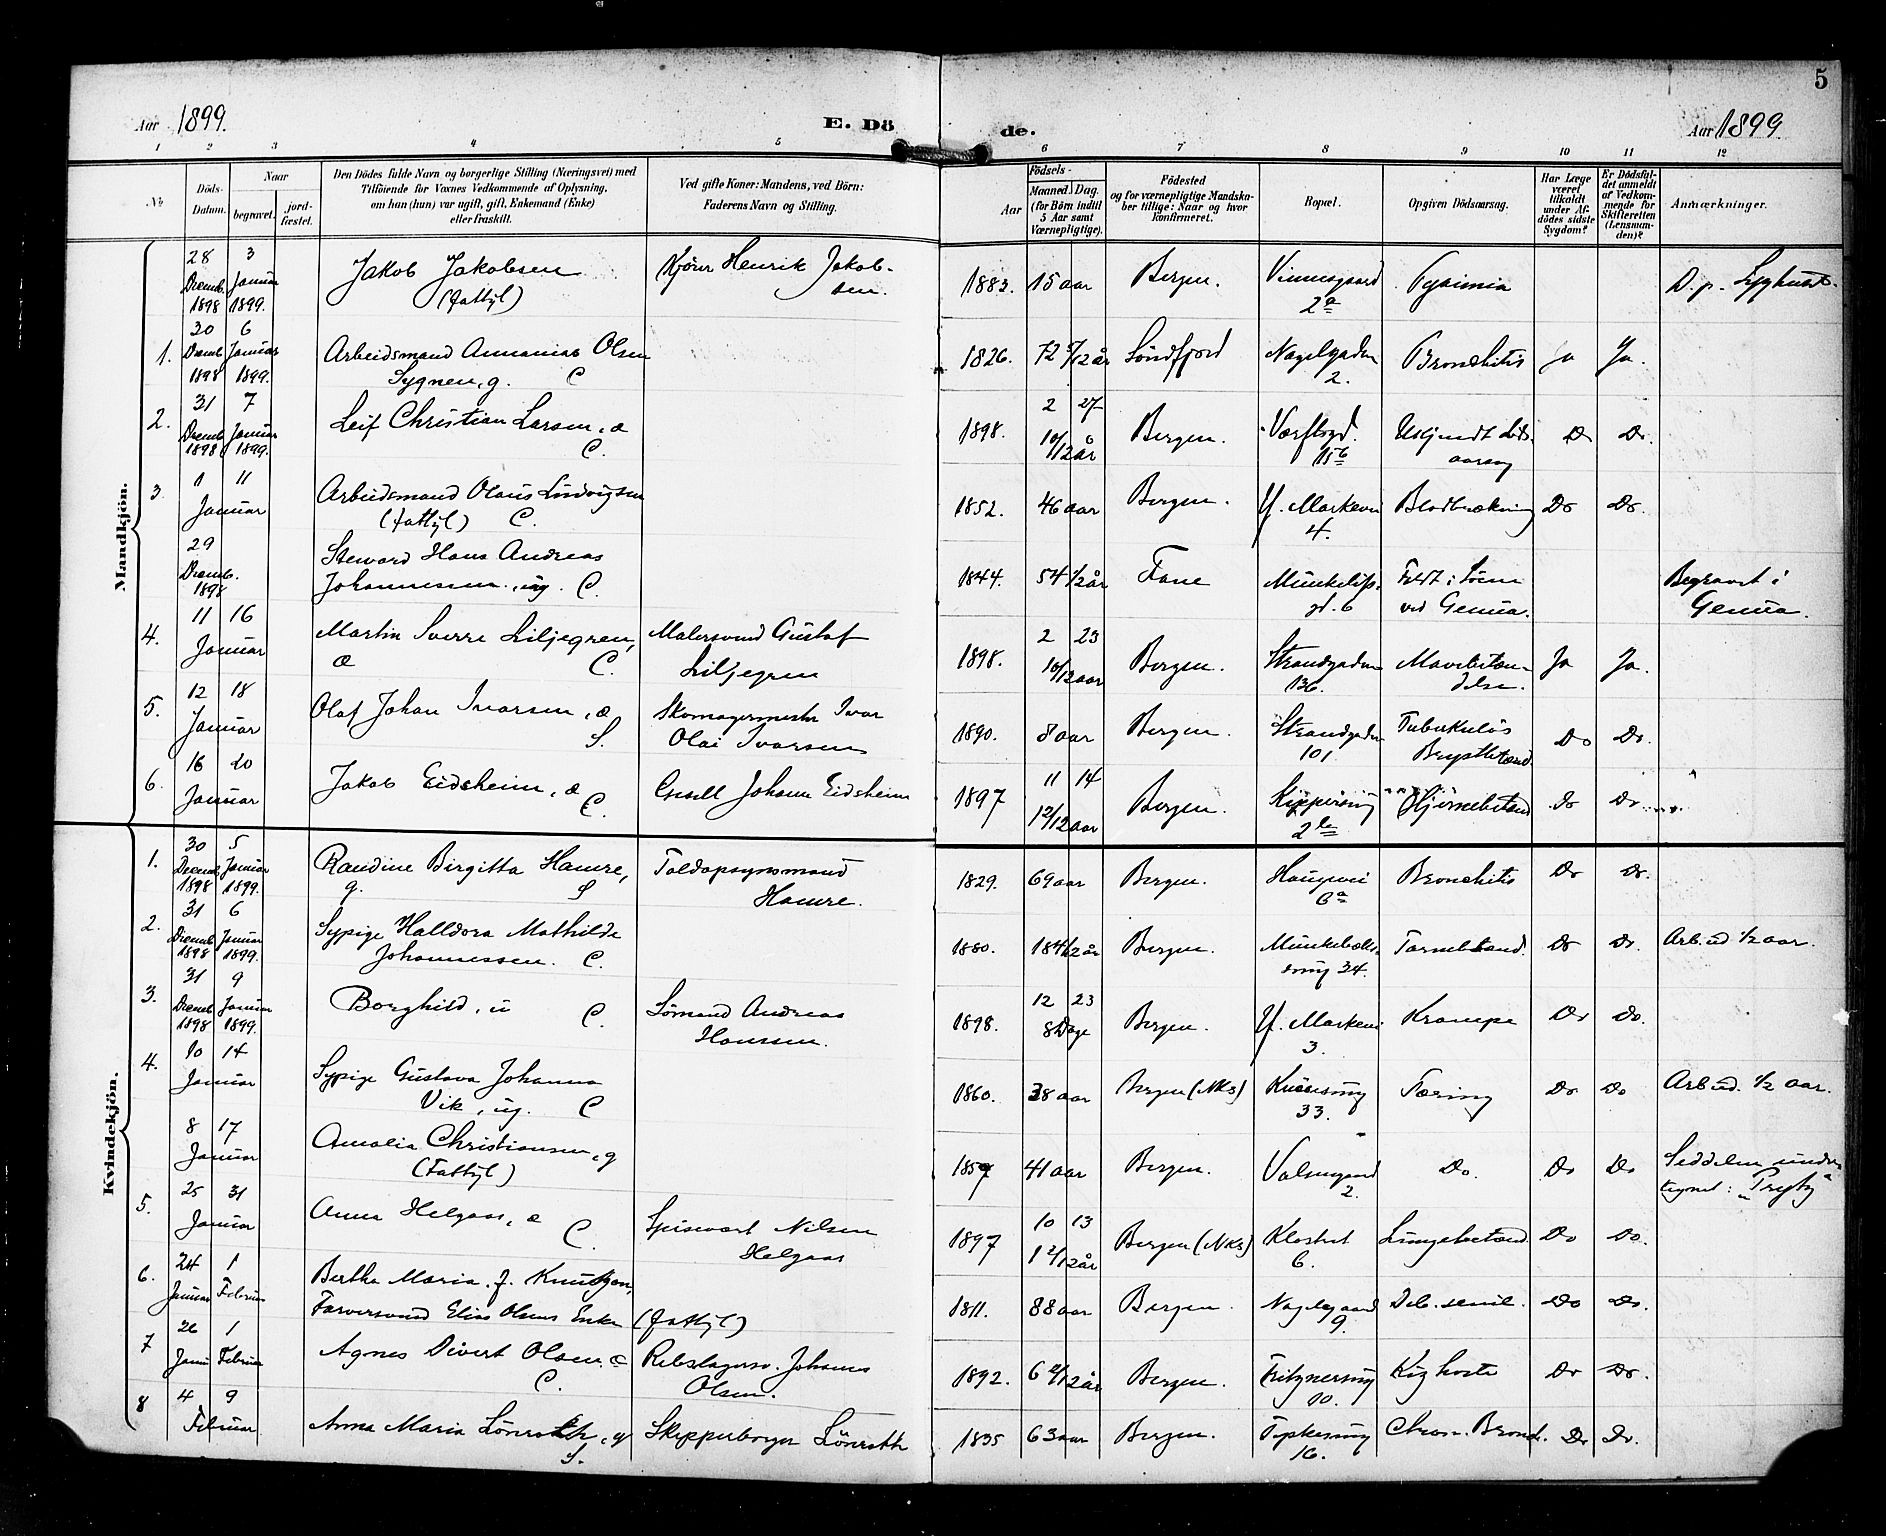 5
Aar 1899.
E. Dö
de.
Aar 1899
1 2 3 4 5 6 7 8 9 10 11 12
No
Döds-Datum.
Naar
begravet.
jord-fæstet.
Den Dödes fulde Navn og borgerlige Stilling (Næringsvei) med
Tilföiende for Voxnes Vedkommende af Oplysning,
om han (hun) var ugift, gift, Enkemand (Enke)
eller fraskilt.
Ved gifte Koner: Mandens, ved Börn:
Faderens Navn og Stilling.
Födsels-
Aar
Maaned. Dag.
(for Börn indtil
5 Aar samt
Værnepligtige).
Födested
og for værnepligtige Mandska-
ber tillige: Naar og hvor
konfirmeret.
Bopæl.
Opgiven Dödsaarsag.
Har Læge
været
tilkaldt
under Af-
dödes sidste
Sygdom?
Er Dödsfal-
det anmeldt
af Vedkom-
mende for
Skifteretten
(Lensman-
den)?
Anmærkninger.
Mandkjön.
28 Decemb. 1898 3 Januar 1899. Jakob Jakobsen (fattigl) Kjører Henrik Jakob-
sen. 1883. 15 aar Bergen. 2a D. p. Sygehuset.
1. 30 Decemb 1898 6 Januar 1899. Arbeidsmand Annanias Olsen
Sygnen, g. C 1826. 72 år Söndfjord Nagelgaden 2. Bronchitis Ja Ja.
2. 31 Decemb 1898 7 Januar 1899. Leif Christian Larsen, æ
C. 1898. 2 27 10/12 år Bergen. 15b Ukjendt döds-
aarsag Do Do.
3. 1 11 Januar Arbeidsmand Olaus Ludvigsen
(fattigl) C. 1852. 46 aar Bergen. Y. Markevei 4. Blodbrækning Do Do.
29 Decemb. 1898 Steward Hans Andreas
Johannessen, ug. C. 1844. 54 1/2 år Fane Munkelifs-
gd. 6 Faldt i Søen
ved Genua. Begravet i
Genua.
4. 11 16 Januar Martin Sverre Liljegren,
æ C. Malersvend Gustaf
Liljegren 1898. 2 23 10/12 aar Bergen. Strandgaden 136. Mavebetæn-
delse. Ja Ja.
5. 12 18 Januar Olaf Johan Ivarsen, æ
S. Skomagermester Ivar
Olai Ivarsen 1890. 8 aar Bergen. Strandgaden 101 Tuberkuløs
Brystbetænd. Do Do.
6. 16 20 Januar Jakob Eidsheim, æ
C. Gesell Johan Eidsheim 1897 11 14 1 2/12 aar Bergen. 2 Hjernebetænd Do Do
Kvindekjön.
1. 30 Decemb 1898 5 Januar 1899. Raudine Birgitta Hamre,
g. S Toldopsynsmand
Hamre. 1829. 69 aar Bergen. Haugevei 6a Bronchitis Do Do.
2. 31 Decemb 1898 6 Januar 1899. Sypige Halldora Mathilde
Johannessen. C. 1880. 18 1/2 år Bergen. Munkebæks-
smug 34. Tarmbetænd. Do Do. Arb.ud. 1/2 aar.
3. 31 Decemb 1898 9 Januar 1899. Borghild, u
C. Sømand Andreas
Hanssen. 1898. 12 23 8 Dage Bergen. Y. Markevei 3. Krampe Do Do.
4. 10 14 Januar Sypige Gustava Johanna
Vik, ug. C 1860. 38 aar Bergen (Nks) 33. Tæring Do Do Arb ud. 1/2 aar.
8 17 Januar Amalia Christiansen, g
(Fattigl) 1857 41 aar Bergen. 2. Do. Do Do Seddelen under-
tegnet: „Tryty“
5. 25 31 Januar Anna Helgaas, æ
C. Spisevært Nilsen
Helgaas 1897 10 13 1 2/12 år Bergen (Nks) Klostret 6. Lungebetænd Do Do.
6. 24 Januar 1 Februar Bertha Maria f. Knudsen,
Farversvend Elias Olsens Enke (fattigl) 1811. 88 aar Bergen. Nagelgaard 9. Deb. senil. Do Do.
7 26 Janu 1 Februar Agnes Divert Olsen æ
C. Rebslagersv. Johannes
Olsen. 1892. 6 2/12 år Bergen. Fritznersmug 10. Kighoste Do Do.
8 4 9 Februar Anna Maria Lönroth, g
S. Skipperborger Lönroth 1835 63 aar Bergen. 16. Chron. Bronch. Do Do.